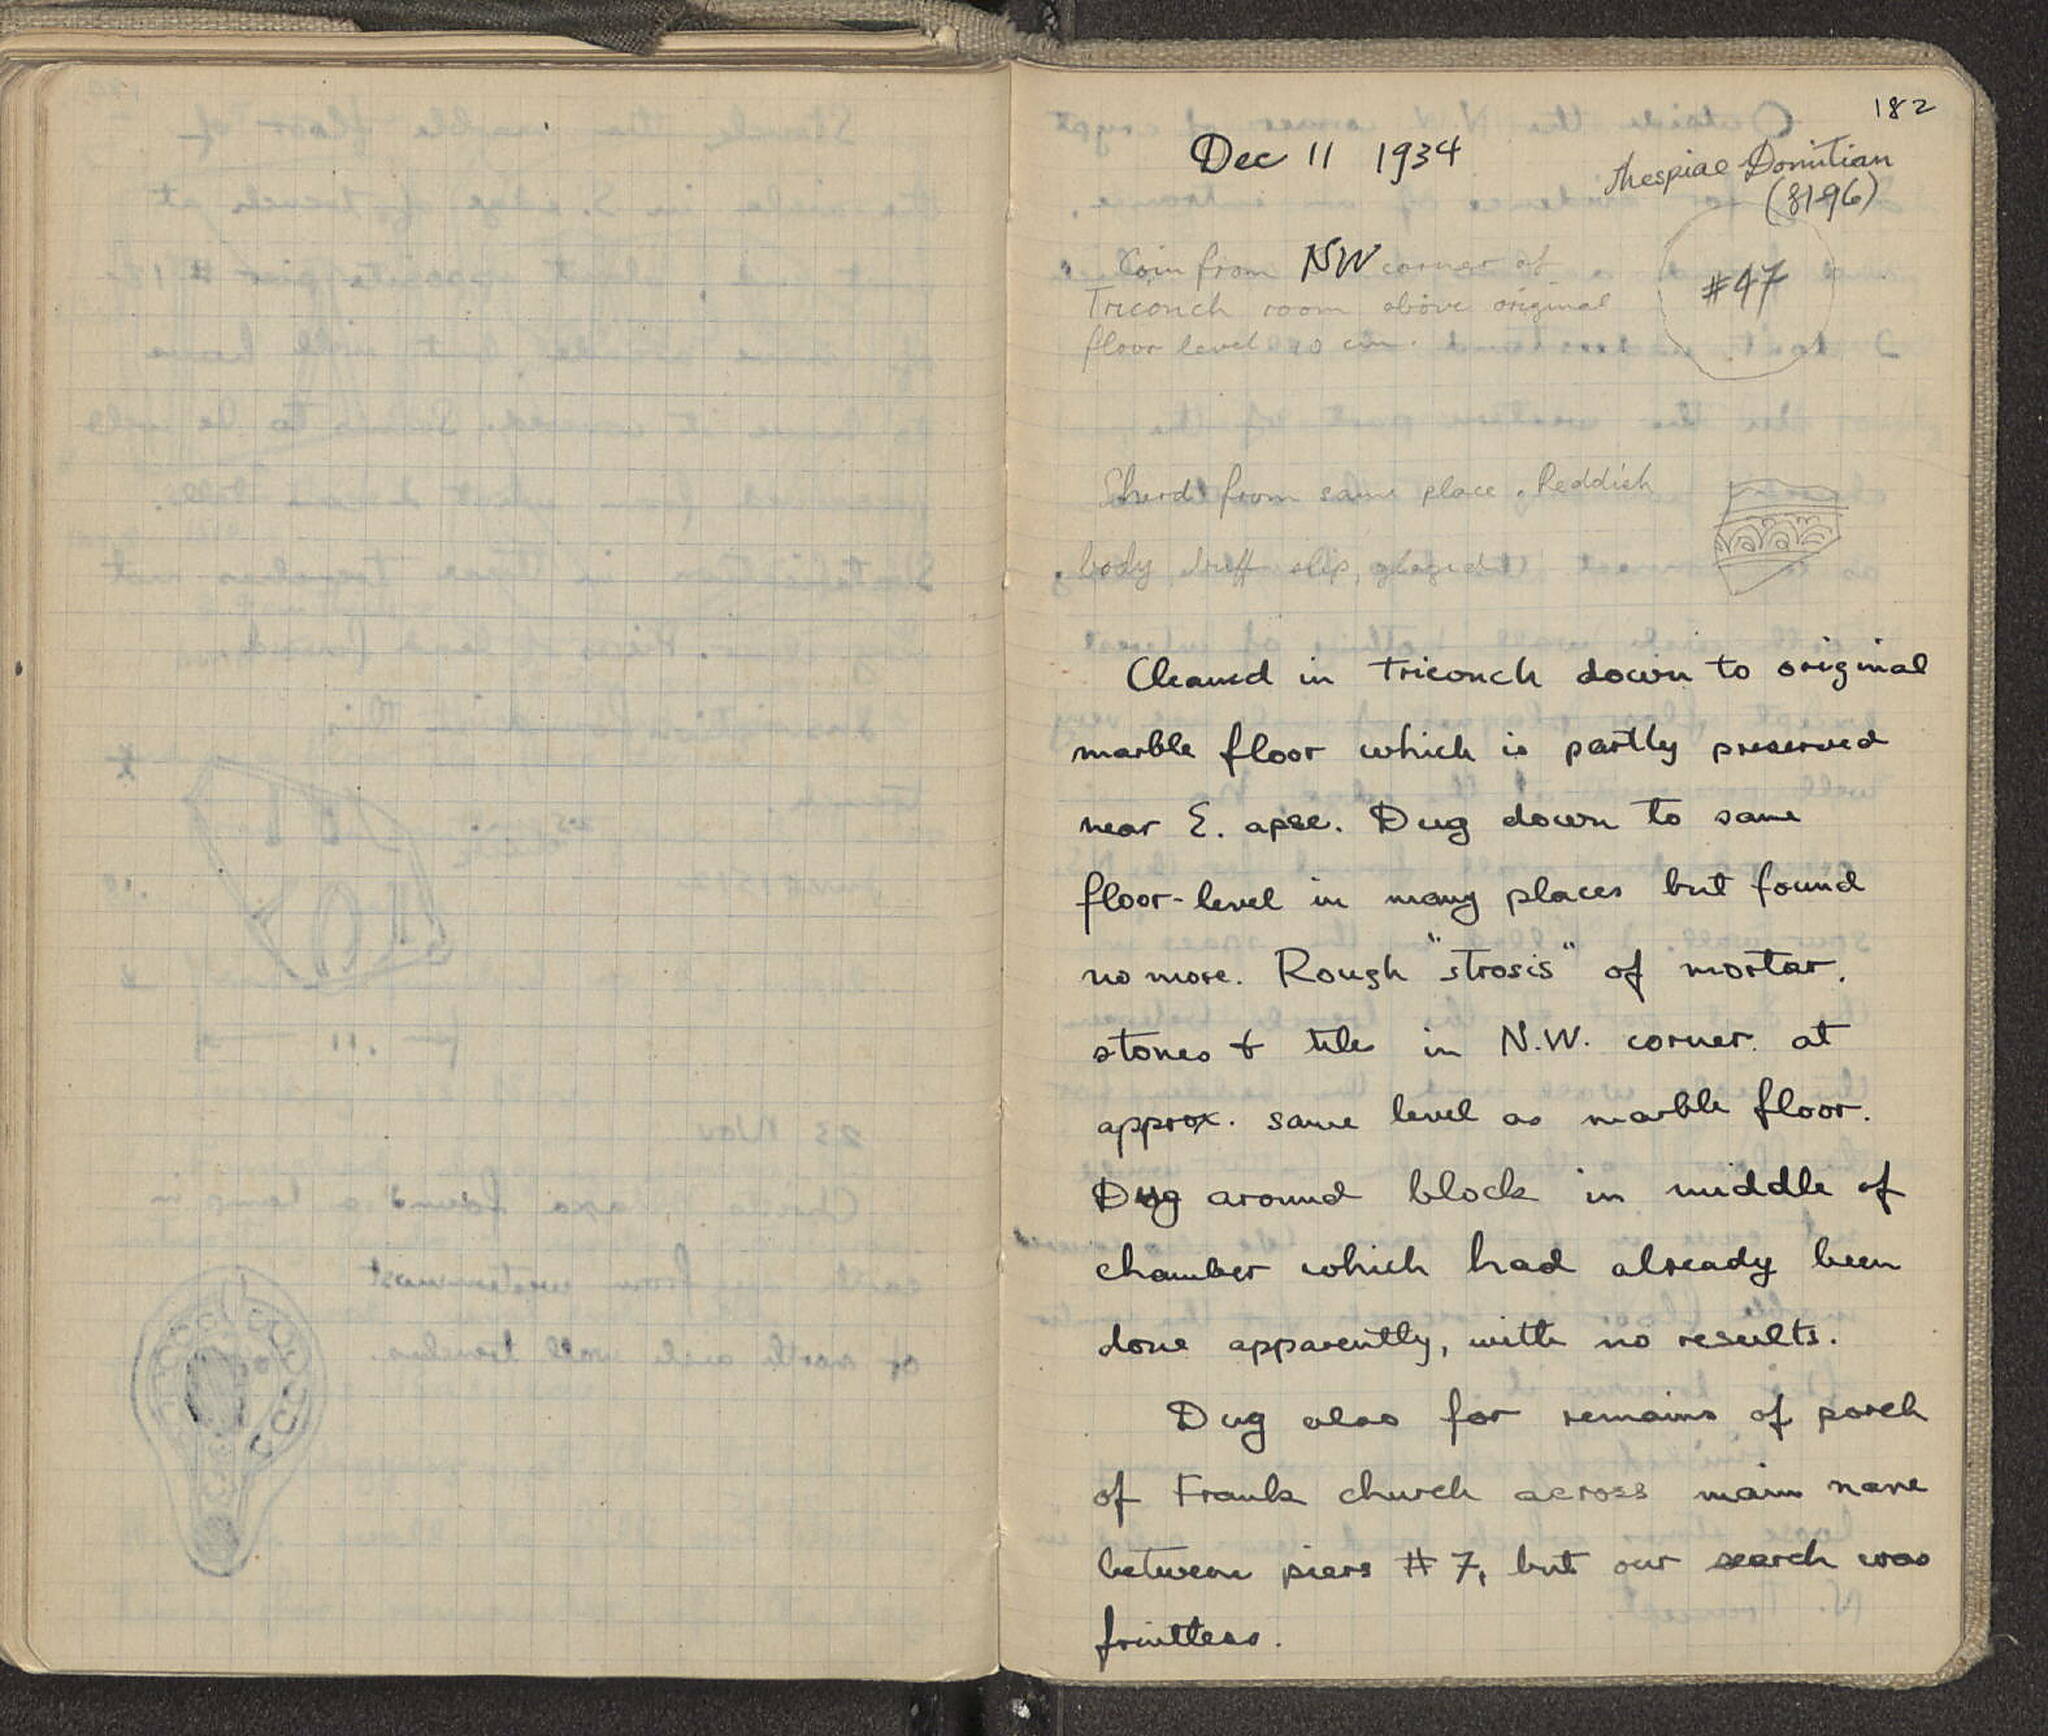 182
Dec 11 1934
Thespiae Domitian
(81-96)
Coin from NW corner of
Triconch room above original
floor level 10 cm.
#47
Sherd from same place. Reddish
body, buff slip, glazed
Cleaned in Triconch down to original
marble floor which is partly preserved
near E. apse. Dug down to same
floor-level in many places but found
no more. Rough "strosis" of mortar,
stones & tile in N.W. corner at
approx. same level as marble floor.
Dug around block in middle of
chamber which had already been
done apparently, with no results.
Dug also for remains of porch
of Frank church across main nave
between piers #7, but our search was
fruitless.